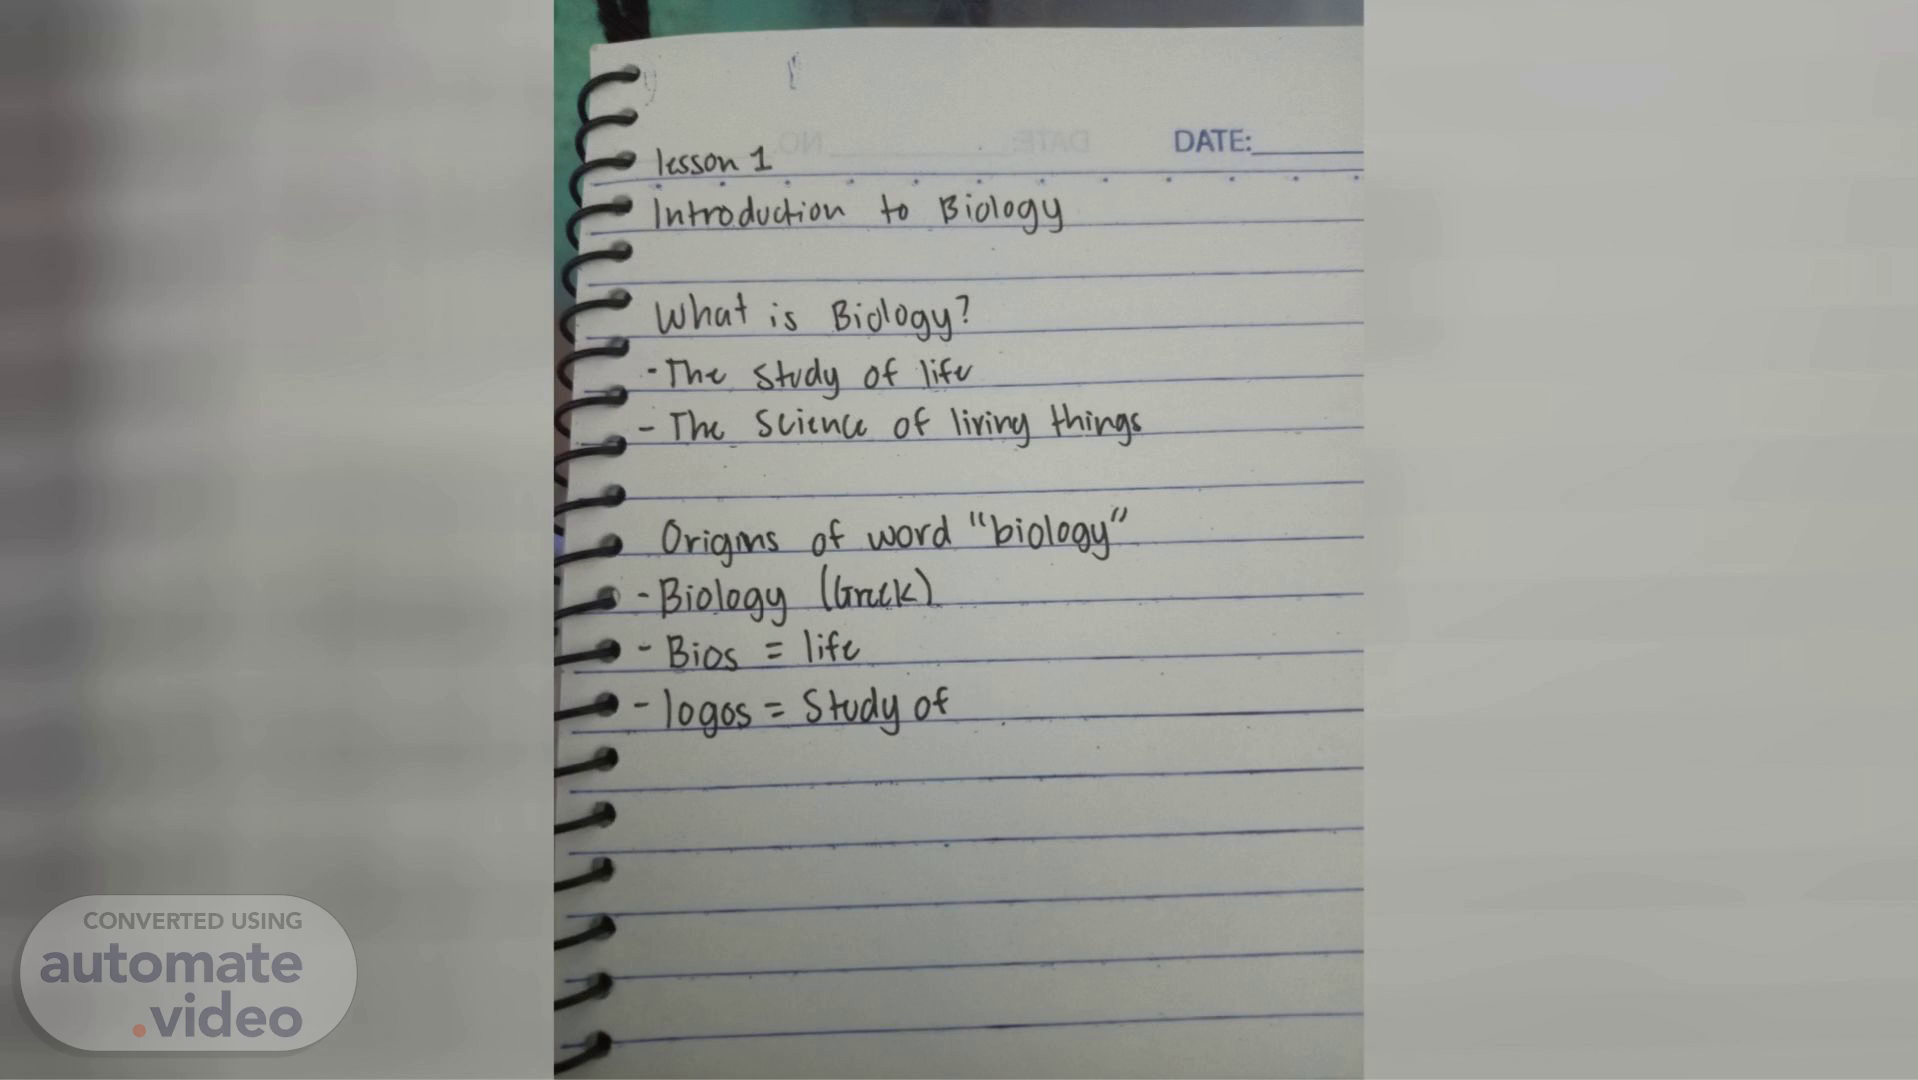 DATE:
lesson 1
Introduction to Biology
What is Biology?
- The study of life
- The science of living things
Origins of word "biology"
- Biology (Greek)
- Bios = life
- logos = Study of
CONVERTED USING
automate
.video